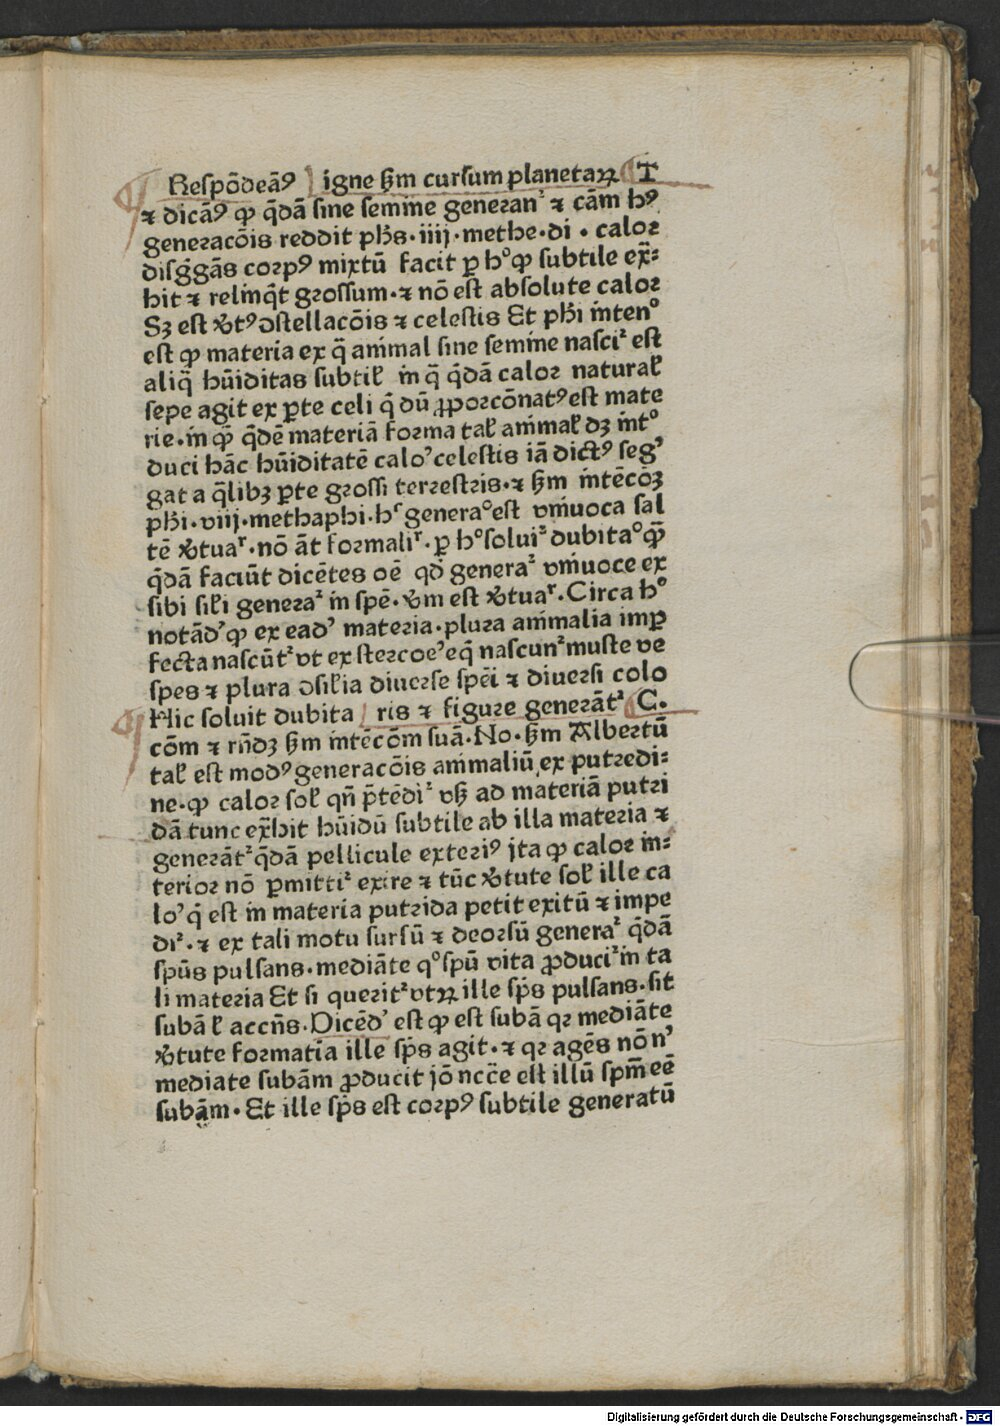 Respōdeāꝰ igne ẞm cursum planetaꝝ T
⁊ dicāꝰ ꝙ q̄dā sine semine generanᷣ ⁊ cām hꝰ
generacōis reddit phs·iiij·methe·di·calor
disg̃gās corpꝰ mixtū facit ꝑ hͦ ꝙ subtile ex̄⸗
hit ⁊ relinq̄t grossum·⁊ nō est absolute calor
Sꝫ est v̓tꝰ ɔstellacōis ⁊ celestis Et phi intenͦ
est ꝙ materia ex q̄ animal sine semine nasciᷣ est
aliq̄ hūiditas subtiƚ in q̄ q̄dā calor naturaƚ
sepe agit ex ꝑte celi q̄ dū ꝓporcōnatꝰ est mate
rie·in ꝙ̄ q̄dē materiā forma taƚ animaƚ dꝫ intͦ
duci hāc hūiditatē calo᾽ celestis iā dictꝰ seg᾽
gat a q̄libꝫ ꝑte grossi terrestris·⁊ ẞm intēcōꝫ
phi·viij·methaphi·hͬ generaͦ est vniuoca sal
tē v̓tuaͬ·nō āt formaliͬ·ꝑ hͦ soluiᷣ dubitaͦ ꝙ̄
q̄dā faciūt dicētes oē qd̓ generaᷣ vniuoce ex
sibi siƚi generaᷣ in spē·v̓m est v̓tuaͬ·Circa hͦ
notād᾽ ꝙ ex ead᾽ materia·plura animalia imꝑ
fecta nascūtᷣ vt ex stercoe᾽ eq̄ nascunᷣ muste ve
spes ⁊ plura ɔsiƚia diuerse spēi ⁊ diuersi colo
Hic soluit dubita ris ⁊ figure generātᷣ C.
cōm ⁊ rn̄dꝫ ẞm intēcōm suā·No·ẞm Albertū
taƚ est modꝰ generacōis animaliū ex putredi⸗
ne·ꝙ calor soƚ qn̄ p̄tēdiᷣ vẞ ad materiā putri
dā tunc ex̄hit hūidū subtile ab illa materia ⁊
generātᷣ q̄dā pellicule exteriꝰ jta ꝙ calor in⸗
terior nō ꝑmittiᷣ exire ⁊ tūc v̓tute soƚ ille ca
lo᾽ q̄ est in materia putrida petit exitū ⁊ impe
diᷣ·⁊ ex tali motu sursū ⁊ deorsū generaᷣ q̄dā
spūs pulsans·mediāte qͦ spū vita ꝓduciᷣ in ta
li materia Et si queritᷣ vtꝝ ille sp̄s pulsans·sit
subā ƚ accn̄s·Dicēd᾽ est ꝙ est subā qꝛ mediāte
v̓tute formatīa ille sp̄s agit·⁊ qꝛ agēs nō n᾽
mediate subām ꝓducit jō ncc̄e est illū spm̄ eē
subām·Et ille sp̄s est corpꝰ subtile generatū
Digitalisierung gefördert durch die Deutsche Forschungsgemeinschaft · DFG